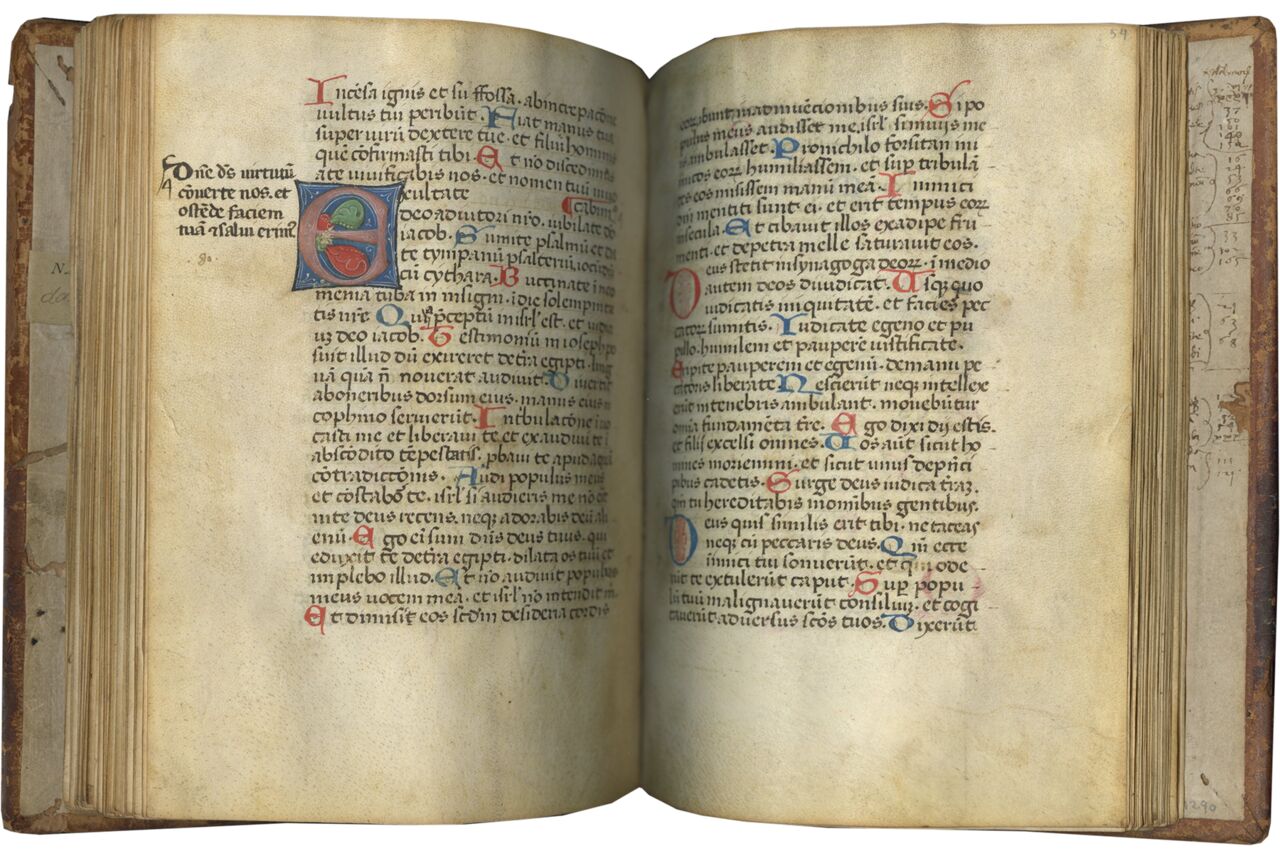 Dn̄e ds̄ uirtutū
cōuerte nos. et
ostēde faciem
tuā ⁊ salui erim⁹
Incēsa ignis et suffossa. abincrepacōne
uultus tui peribūt. Fiat manus tua
super uirū dextere tue. et filiū hominis
quē cōfirmasti tibi. Et nō discedim⁹
a te uiuificabis nos. et nomen tuū inuo
Exultate cabim⁹
deo adiutori nr̄o. iubilate deo
iacob. Sumite psalmū et da
te tympanū psalteriū iocūdū
cū cythara. Buccinate ī neo
menia tuba in insigni. ī die solempnita
tis nr̄e. Quia p̄ceptū in isrl̄ est. et iudiciū
deo iacob. Testimoniū in ioseph po
suit illud dū exiret de tr̄a egipti. ling
uā quā n̄ nouerat audiuit. Diuertit
ab oneribus dorsum eius. manus eius ī
cophino seruierūt. In tribulacōne īuo
casti me et liberaui te. et exaudiui te ī
abscōdito tēpestatis. p̄baui te apud aquā
cōtradictiōnis. Audi populus meus
et cōtestabor te. isrl̄ si audieris me nō erit
in te deus recens. neqꝫ adorabis deū ali
enū. Ego ei sum dn̄s deus tuus. qui
eduxit te de tr̄a egipti. dilata os tuū et
implebo illud. Et nō audiuit populus
meus uocem meā. et isrl̄ nō intendit m̄
Et dimisit eos scdm̄ desideria cordis
54
eoꝝ. ibunt in adinuēcionibus suis. Si po
pulus meus audisset me. isrl̄ si in uijs me
is ambulasset. Pro nichilo forsitan ini
micos eoꝝ humiliassem. et sup̄ tribulā
tes eos misissem manū meā. Inimici
dn̄i mentiti sunt ei. et erit tempus eoꝝ
in secula. Et cibauit illos ex adipe fru
menti. et de petra melle saturauit eos.
Deus stetit in synagoga deoꝝ. ī medio
autem deos diiudicat. Usqꝫ quo
iudicatis iniquitatē. et facies pec
catoꝝ sumitis. Iudicate egeno et pu
pillo. humilem et pauperē iustificate.
Eripite pauperem et egenū. de manu pe
catoris liberate. Nescierūt neqꝫ intellexe
rūt in tenebris ambulant. mouebūtur
om̄ia fundamēta tr̄e. Ego dixi dij estis.
et filij excelsi omnes. Uos aūt sicut ho
mines moriemini. et sicut unus de pn̄ci
pibus cadetis. Surge deus iudica tr̄aꝫ.
qm̄ tu hereditabis in omībus gentibus.
Deus quis similis erit tibi. ne taceas
neqꝫ cū peccaris deus. Qm̄ ecce
inimici tui sonuerūt. et qui ode
rūt te extulerūt caput. Sup̄ popu
lū tuū malignauerūt consiliuꝫ. et cogi
tauerūt aduersus sc̄os tuos. Dixerūt
1290